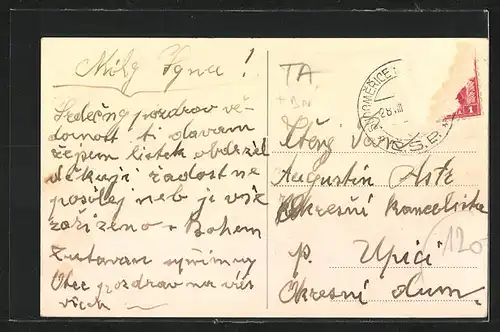 Milý Synu!
Srdečný pozdrav vě-
domost ti dávam
žejem lístek obdržel
děkuji žádost ne
posílej neb je vše
zařízeno s Bohem
Zustavam upřímný
Otec pozdrav na vás
všech
TA
28.III
Č.S.P.
1
Ctěný
Augustin
Okresní Kancelist
p. Upici
Okresní dum
120